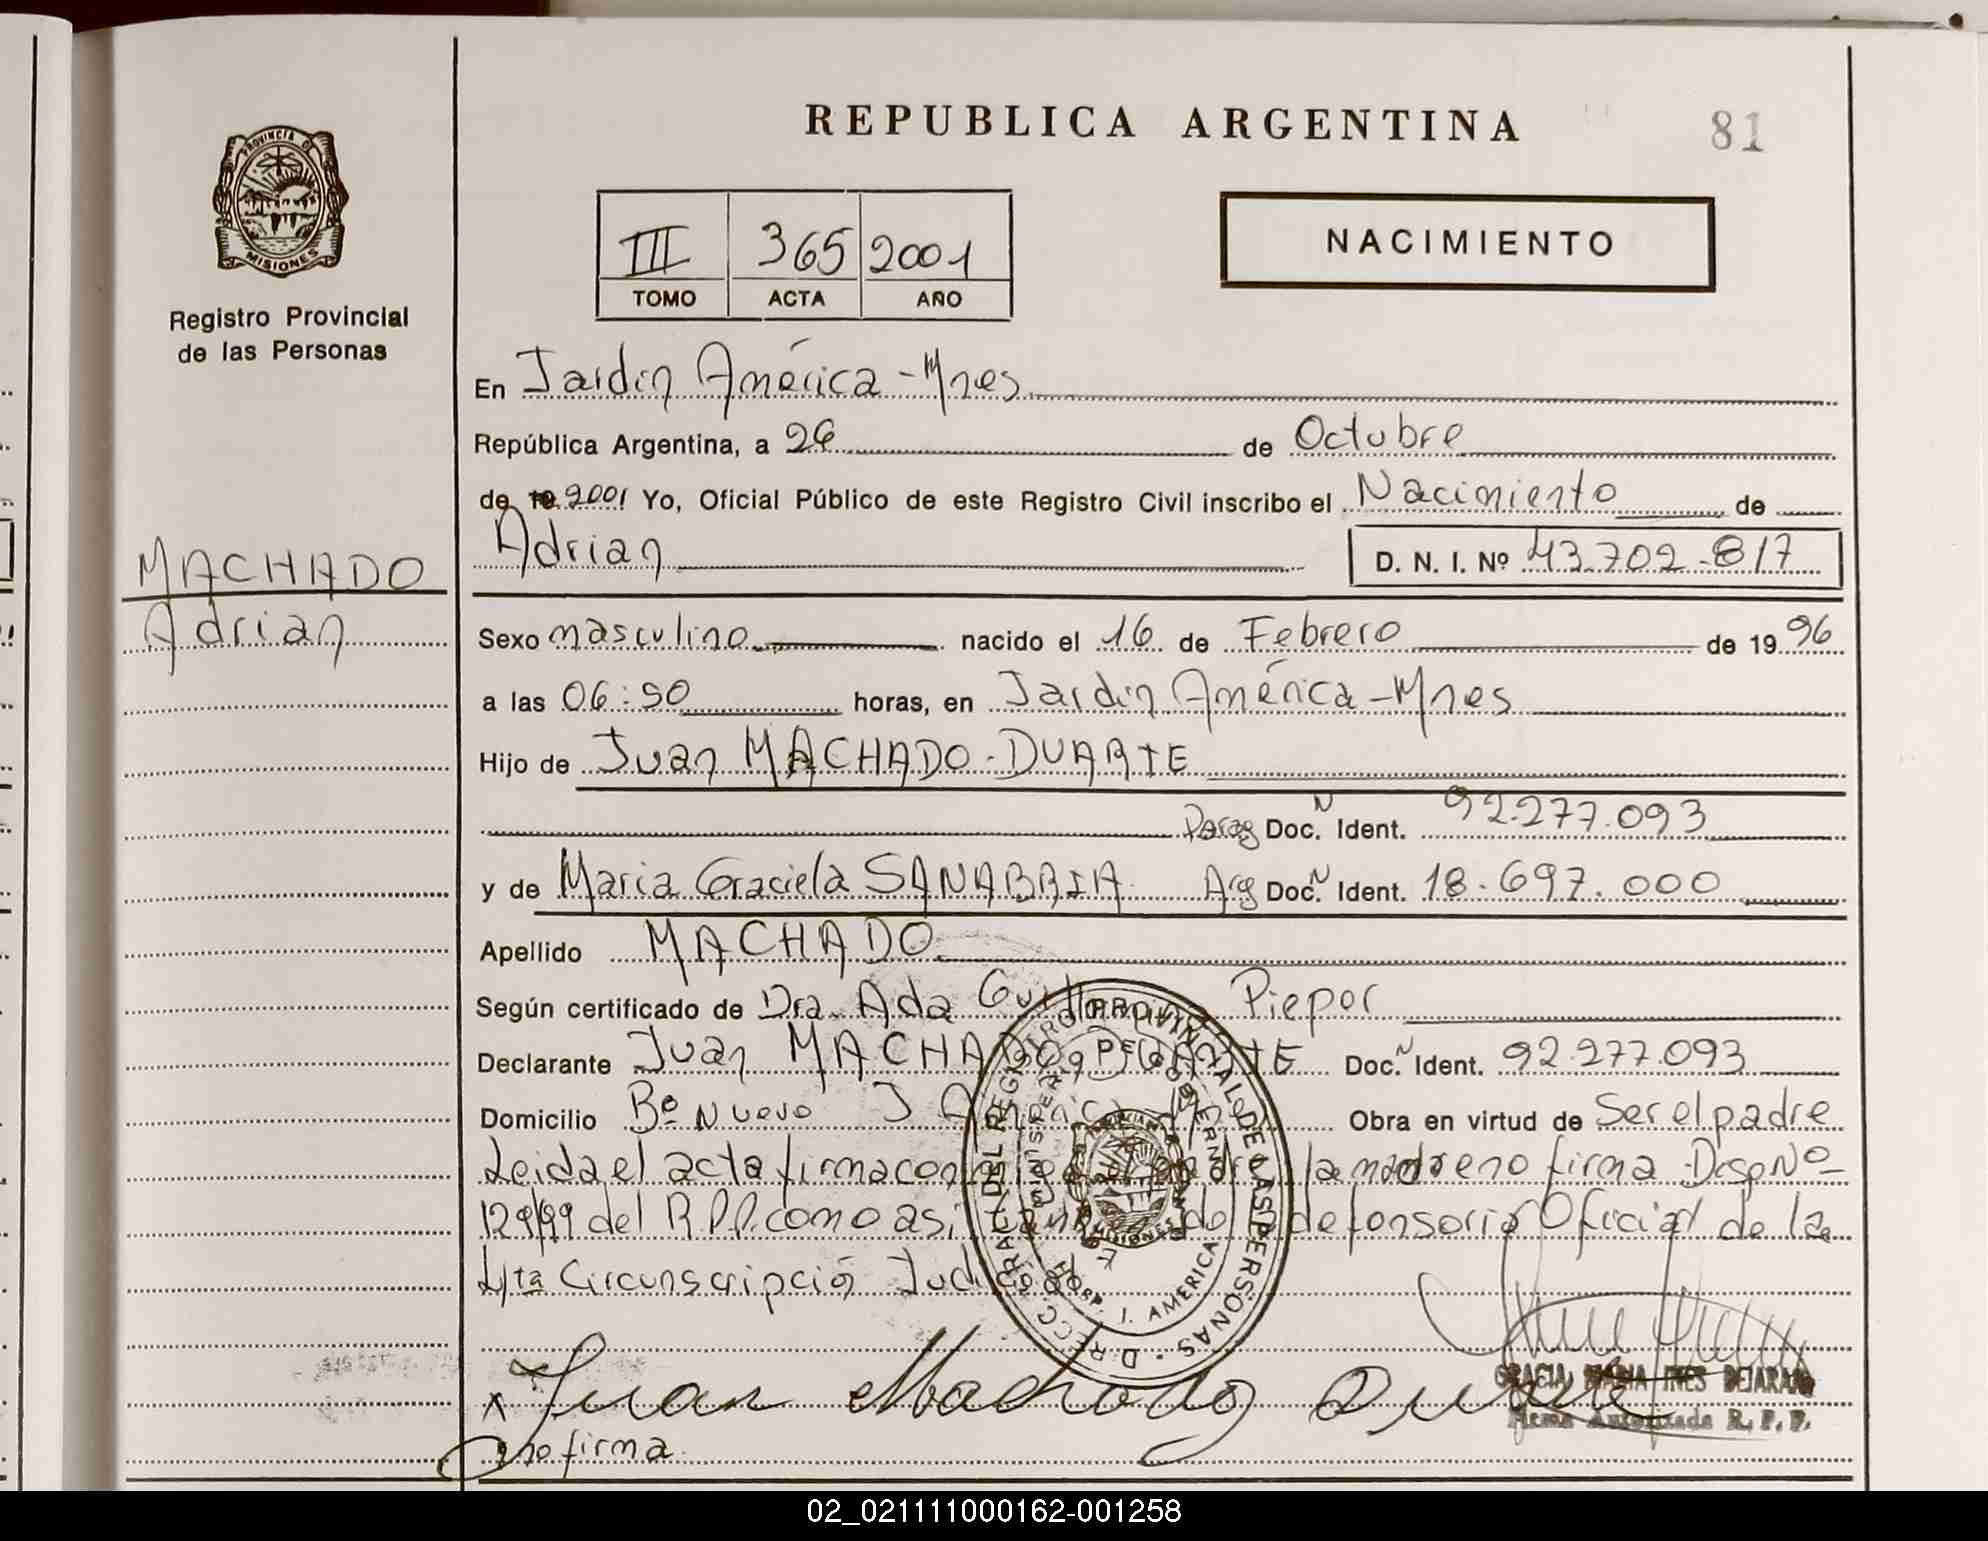 REPUBLICA ARGENTINA
81
PROVINCIA DE
MISIONES
Registro Provincial
de las Personas
III 365 2001
TOMO ACTA AÑO
NACIMIENTO
En Jardin América - Mnes
República Argentina, a 26 de Octubre
de 19 2001 Yo, Oficial Público de este Registro Civil inscribo el Nacimiento de
Adrian D. N. I. Nº 43.702.817
MACHADO
Adrian
Sexo masculino nacido el 16 de Febrero de 19 96
a las 06:50 horas, en Jardin América - Mnes
Hijo de Juan MACHADO-DUARTE
Parag Doc. N Ident. 92.277.093
y de Maria Graciela SANABRIA Arg Doc. N Ident. 18.697.000
Apellido MACHADO
Según certificado de Dra. Ada Piepor
Declarante Juan MACHADO DUARTE Doc. N Ident. 92.277.093
Domicilio Bº Nuevo J América Obra en virtud de Ser el padre
Leida el acta firma la madre no firma Disp Nº
129/99 del R.P.P. como asi defensoria Oficial de la
4ta Circunscripción Judicial
DIRECC. GRAL. DEL REGISTRO PROVINCIAL DE LAS PERSONAS
HOSP. J. AMERICA
x Juan Machado Duarte
GRACIA MARIA INES BEJARANO
Firma Autorizada R. P. P.
no firma
02_021111000162-001258